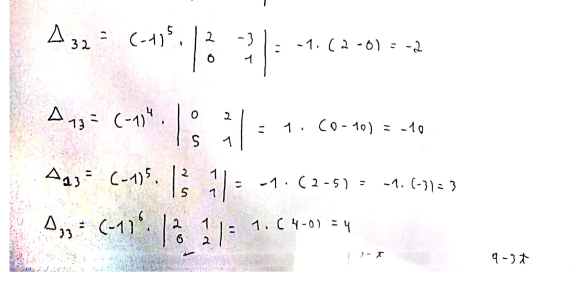 Δ₃₂ = (-1)⁵ · | 2 -3 ; 0 1 | = -1 · (2-0) = -2
Δ₁₃ = (-1)⁴ · | 0 2 ; 5 1 | = 1 · (0-10) = -10
Δ₂₃ = (-1)⁵ · | 2 1 ; 5 1 | = -1 · (2-5) = -1 · (-3) = 3
Δ₃₃ = (-1)⁶ · | 2 1 ; 0 2 | = 1 · (4-0) = 4